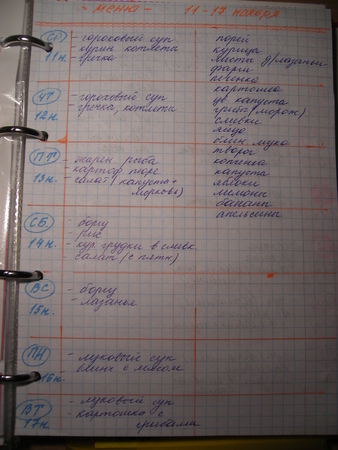 - меню - 11-17 ноября
СР
11н.
- гороховый суп
- курин котлеты
- гречка
ЧТ
12н.
- гороховый суп
- гречка, котлеты
ПТ
13н.
- жарен рыба
- картоф пюре
- салат (капуста +
морковь)
СБ.
14н.
- борщ
- рис
- кур грудки в сливк
- салат (с пятн)
ВС
15н.
- борщ
- лазанья
ПН
16н.
- луковый суп
- блины с мясом
ВТ
17н.
- луковый суп
- картошка с
грибами
порей
курица
листы д/лазаньи
фарш
печенка
картошка
цв капуста
сливки
яйцо
блин мука
творог
капуста
яблоки
лимоны
бананы
апельсины